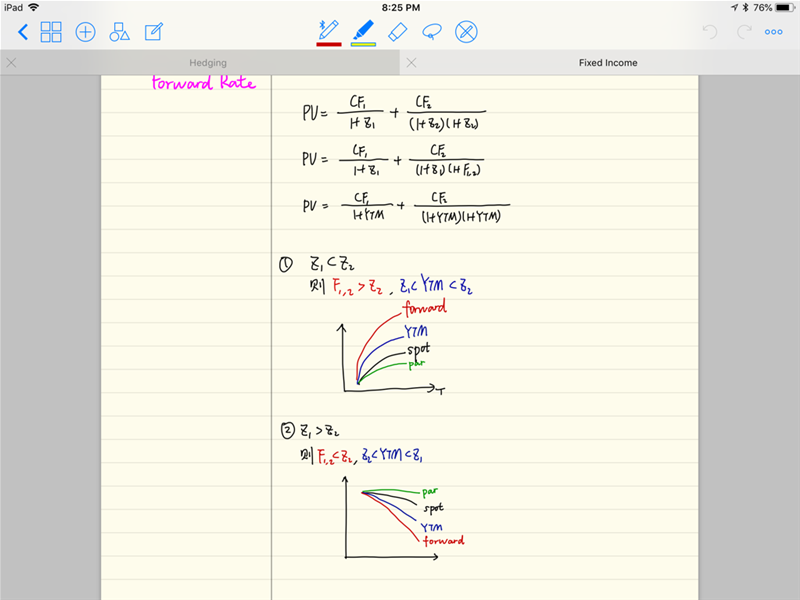 iPad 8:25 PM 76%
Hedging Fixed Income
Forward Rate
PV = CF₁/(1+Z₁) + CF₂/((1+Z₂)(1+Z₂))
PV = CF₁/(1+Z₁) + CF₂/((1+Z₁)(1+F₁,₂))
PV = CF₁/(1+YTM) + CF₂/((1+YTM)(1+YTM))
① Z₁<Z₂
则 F₁,₂>Z₂, Z₁<YTM<Z₂
forward
YTM
spot
par
T
② Z₁>Z₂
则 F₁,₂<Z₂, Z₂<YTM<Z₁
par
spot
YTM
forward